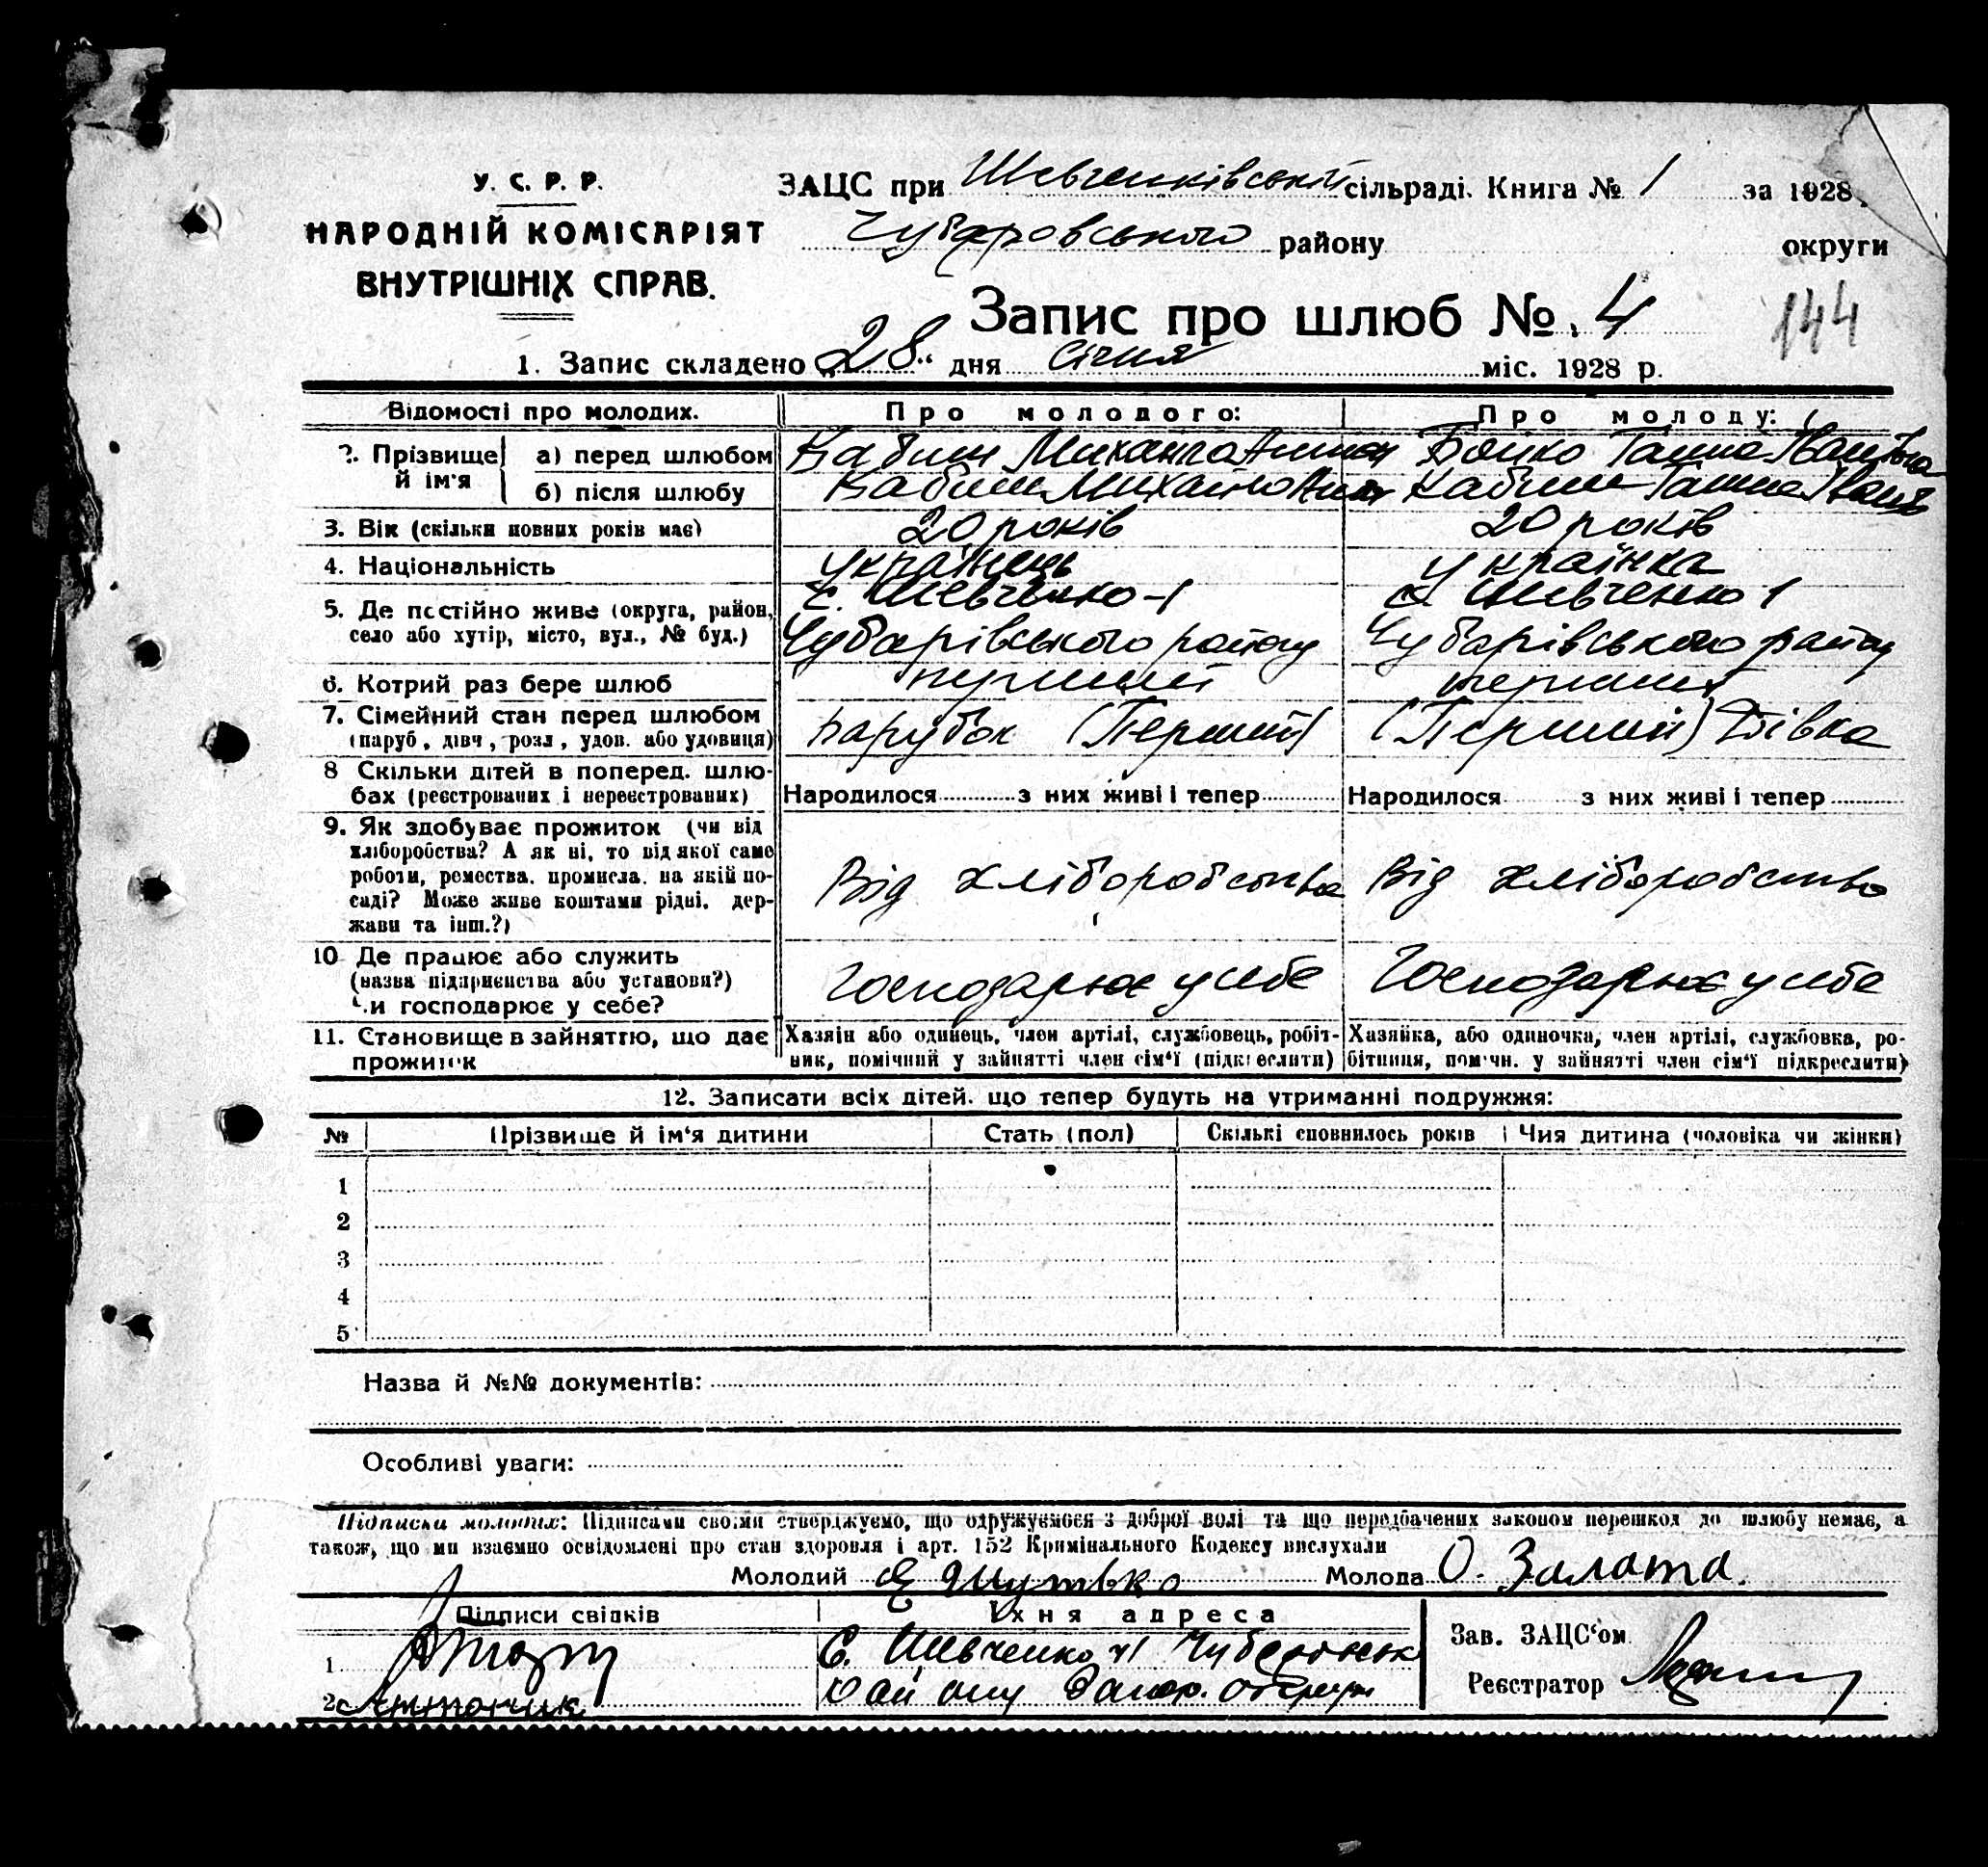 У. С. Р. Р.
НАРОДНІЙ КОМІСАРІЯТ
ВНУТРІШНІХ СПРАВ.
ЗАЦС при Шевченківській сільраді. Книга № 1 за 1928
Чубаровського району округи
Запис про шлюб № 4
144
1. Запис складено „28“ дня Січня міс. 1928 р.
Відомості про молодих. Про молодого: Про молоду:
2. Прізвище й ім'я
а) перед шлюбом Кабиш Михайло Бойко Ганна Іванівна
б) після шлюбу Кабиш Михайло Кабиш Ганна
3. Вік (скільки повних років має) 20 років 20 років
4. Національність українець українка
5. Де постійно живе (округа, район, с. Шевченко-1 с. Шевченко 1
село або хутір, місто, вул., № буд.) Чубарівського району Чубарівського району
6. Котрий раз бере шлюб перший перший
7. Сімейний стан перед шлюбом
(паруб., дівч., розл., удов. або удовиця) Парубок (Перший) (Перший) Дівка
8 Скільки дітей в поперед. шлю-
бах (реєстрованих і нереєстрованих) Народилося з них живі і тепер Народилося з них живі і тепер
9. Як здобуває прожиток (чи від
хліборобства? А як ні, то від якої саме
роботи, ремества, промисла, на якій по-
саді? Може живе коштами рідні, дер-
жави та інш.?) Від хліборобства Від хліборобства
10 Де працює або служить
(назва підприємства або установи?)
Чи господарює у себе? Господарює у себе Господарює у себе
11. Становище в зайняттю, що дає
прожиток
Хазяїн або одинець, член артілі, службовець, робіт-
ник, помічний у зайнятті член сім'ї (підкреслити)
Хазяйка, або одиночка, член артілі, службовка, ро-
бітниця, помічн. у зайнятті член сім'ї підкреслити)
12. Записати всіх дітей, що тепер будуть на утриманні подружжя:
№ Прізвище й ім'я дитини Стать (пол) Скількі сповнилось років Чия дитина (чоловіка чи жінки)
1
2
3
4
5
Назва й №№ документів:
Особливі уваги:
Підписи молодих: Підписами своїми стверджуємо, що одружуємося з доброї волі та що передбачених законом перешкод до шлюбу немає, а
також, що ми взаємно освідомлені про стан здоровля і арт. 152 Кримінального Кодексу вислухали
Молодий Молода О. Залата.
Підписи свідків Їхня адреса
1 С. Шевченко
2 Району Запор. округи
Зав. ЗАЦС'ом
Реєстратор